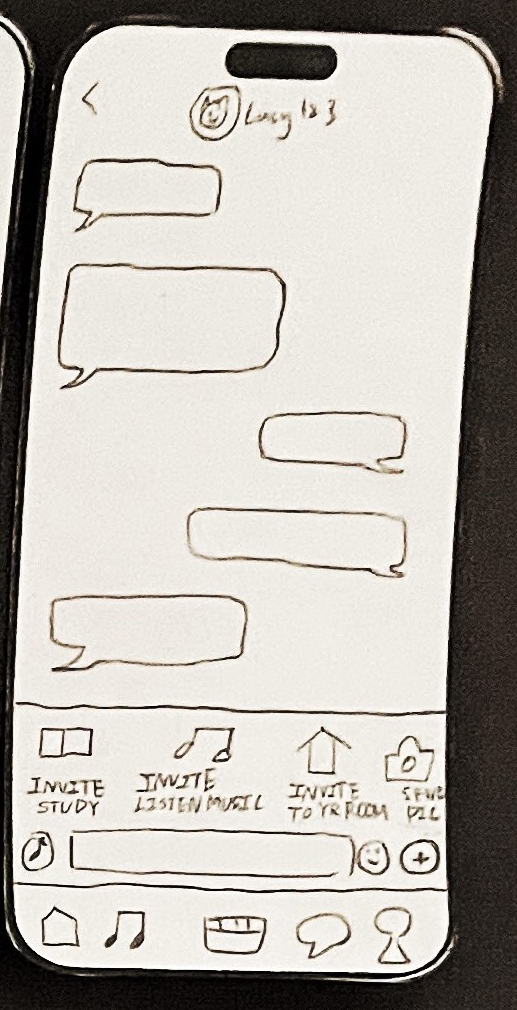 Lucy 123
INVITE
STUDY
INVITE
LISTEN MUSIC
INVITE
TO YR ROOM
SEND
PIC